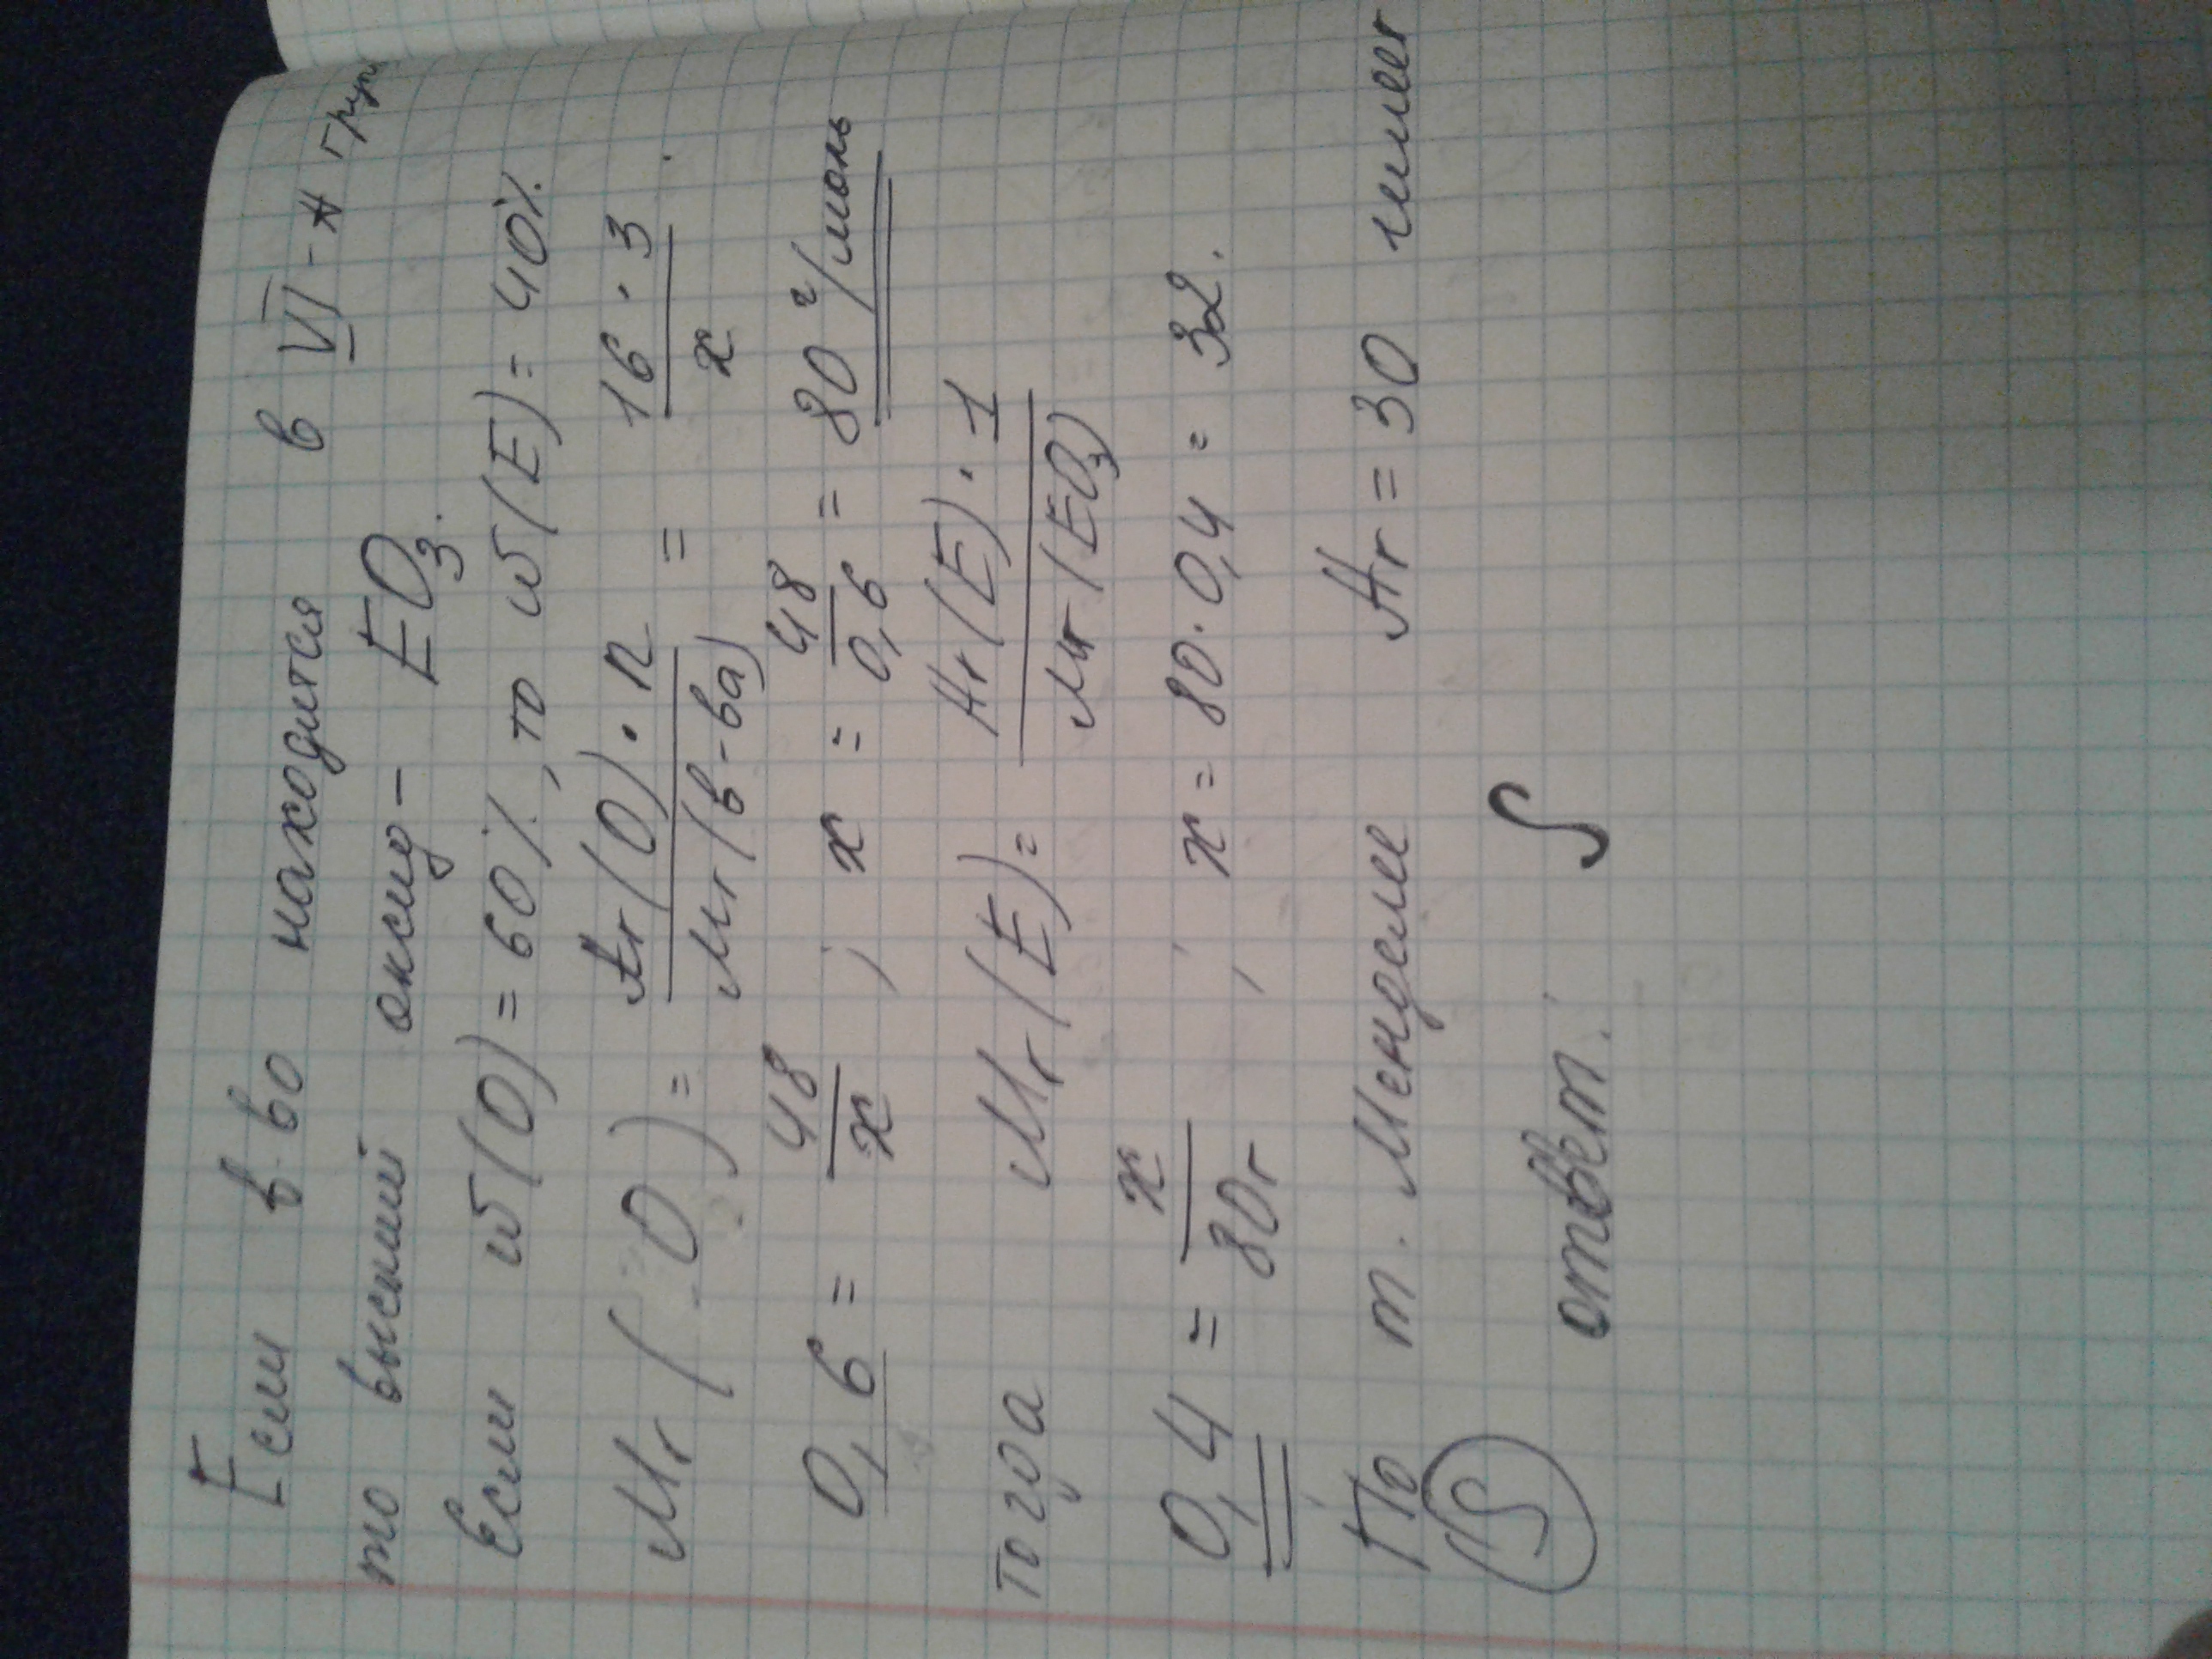 Если в-во находится в VI-А груп
то высший оксид - EO₃.
Если ω(O) = 60%, то ω(E) = 40%
Mr(O) = Ar(O)·n / Mr(в-ва) = 16·3 / x
0,6 = 48/x ; x = 48/0,6 = 80 г/моль
тогда Mr(E) = Ar(E)·1 / Mr(EO₃)
0,4 = x/80г ; x = 80·0,4 = 32.
По т. Менделее Ar = 30 имеет
S ответ: S